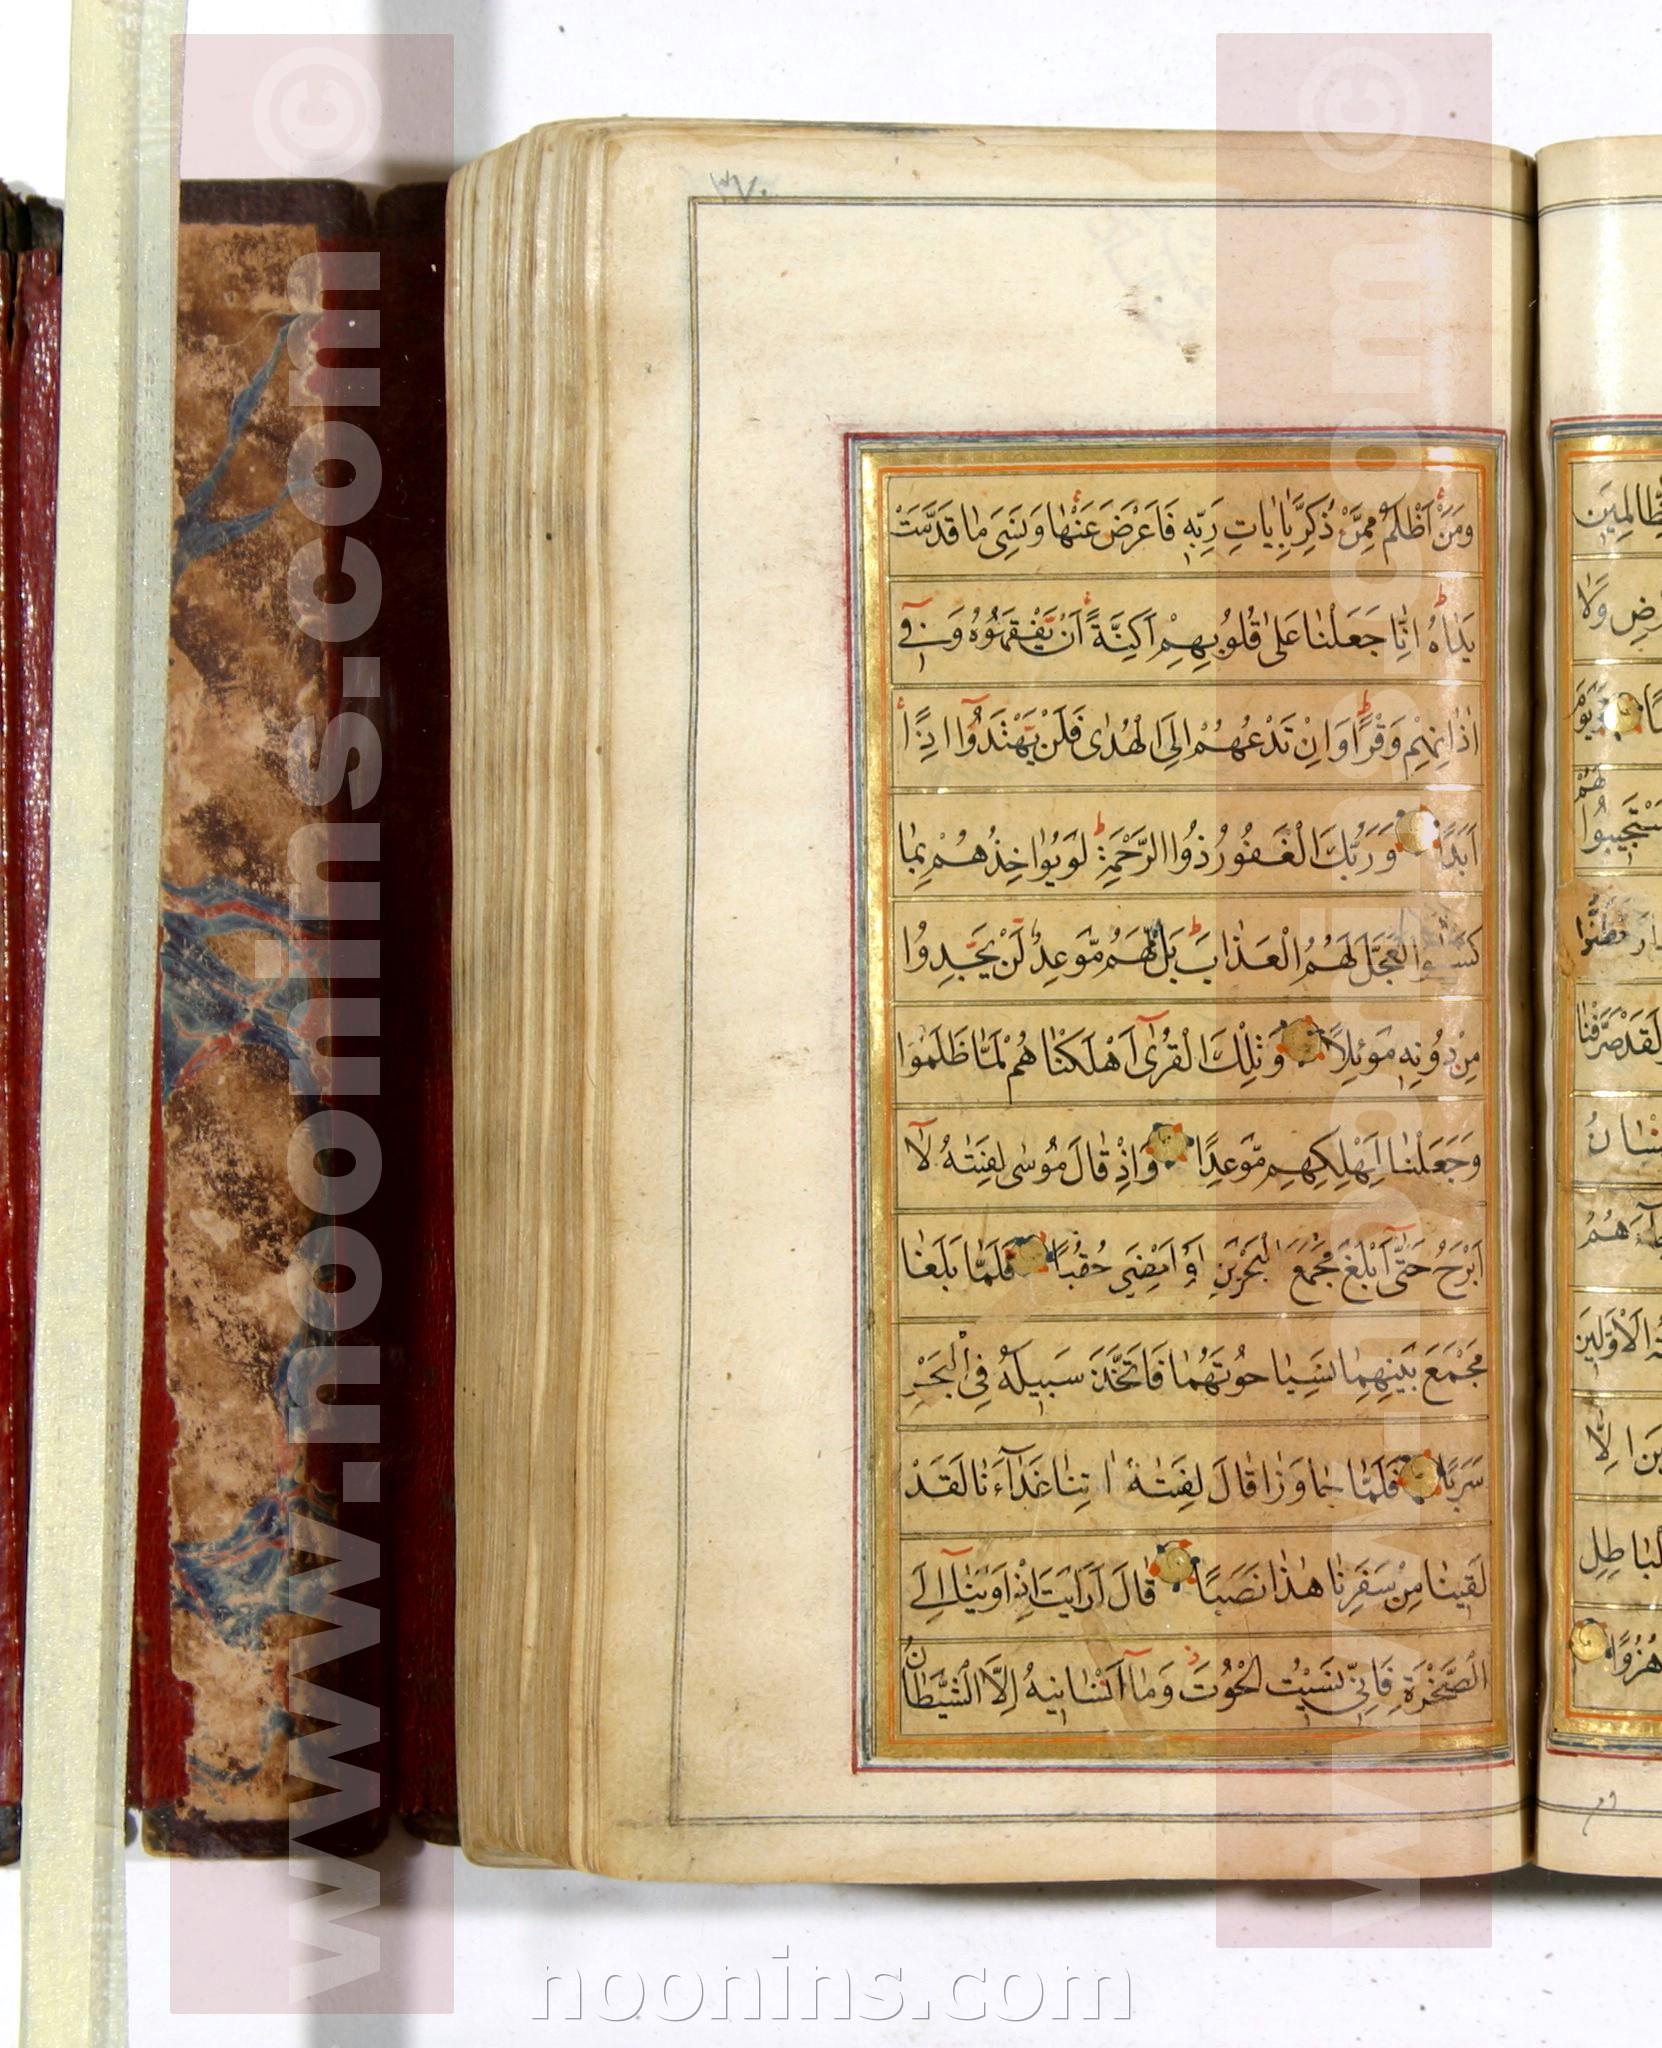 ٣٧٠
وَمَنْ اَظْلَمُ مِمَّنْ ذُكِّرَ بِاٰيٰاتِ رَبِّهٖ فَاَعْرَضَ عَنْهٰا وَنَسِىَ مٰا قَدَّمَتْ
يَدٰاهُ اِنّٰا جَعَلْنٰا عَلىٰ قُلُوبِهِمْ اَكِنَّةً اَنْ يَفْقَهُوهُ وَفٖى
اٰذٰانِهِمْ وَقْرًا وَاِنْ تَدْعُهُمْ اِلَى الْهُدٰى فَلَنْ يَهْتَدُوٓا اِذًا
اَبَدًا وَرَبُّكَ الْغَفُورُ ذُوا الرَّحْمَةِ لَوْ يُوٰاخِذُهُمْ بِمٰا
كَسَبُوا لَعَجَّلَ لَهُمُ الْعَذٰابَ بَلْ لَهُمْ مَوْعِدٌ لَنْ يَجِدُوا
مِنْ دُونِهٖ مَوْئِلًا وَتِلْكَ الْقُرٰٓى اَهْلَكْنٰاهُمْ لَمّٰا ظَلَمُوا
وَجَعَلْنٰا لِمَهْلِكِهِمْ مَوْعِدًا وَاِذْ قٰالَ مُوسٰى لِفَتٰيهُ لٰٓا
اَبْرَحُ حَتّٰٓى اَبْلُغَ مَجْمَعَ الْبَحْرَيْنِ اَوْ اَمْضِىَ حُقُبًا فَلَمّٰا بَلَغٰا
مَجْمَعَ بَيْنِهِمٰا نَسِيٰا حُوتَهُمٰا فَاتَّخَذَ سَبٖيلَهُ فِى الْبَحْرِ
سَرَبًا فَلَمّٰا جٰاوَزٰا قٰالَ لِفَتٰيهُ اٰتِنٰا غَدٰٓاءَنٰا لَقَدْ
لَقٖينٰا مِنْ سَفَرِنٰا هٰذٰا نَصَبًا قٰالَ اَرَاَيْتَ اِذْ اَوَيْنٰٓا اِلَى
الصَّخْرَةِ فَاِنّٖى نَسٖيتُ الْحُوتَ وَمٰٓا اَنْسٰانٖيهُ اِلَّا الشَّيْطٰانُ
وَلَا
يَوْمَ
هُمْ
الْاَوَّلٖينَ
هُزُوًا
www.noonins.com ©
www.noonins.com ©
noonins.com